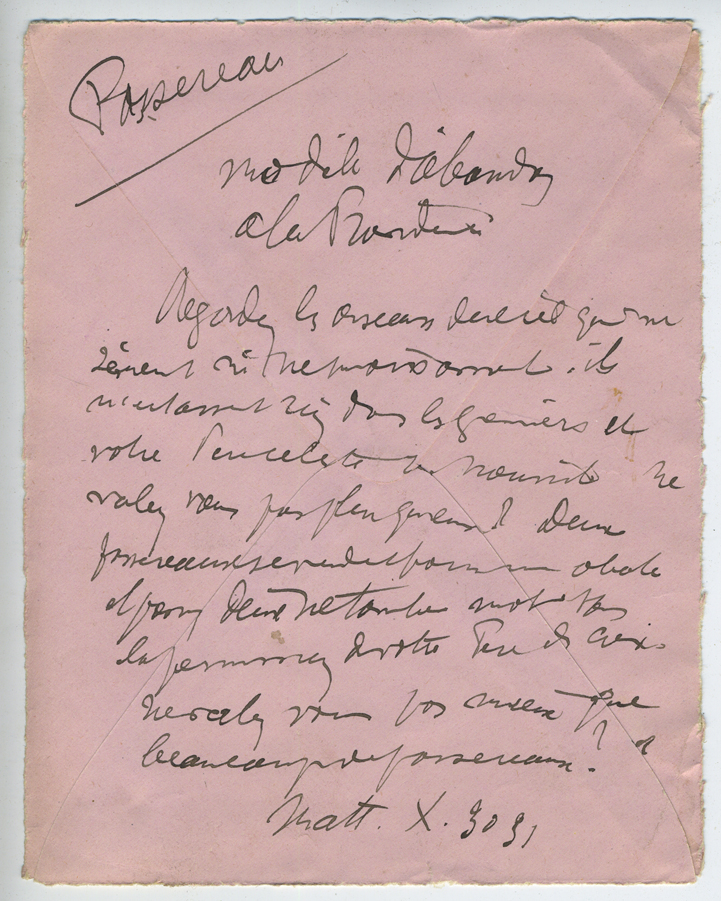 Passereau
modèle d'abandon
à la Providence
Regardez les oiseaux du ciel qui ne
sèment ni ne moissonnent. ils
n'entassent rien dans les greniers et
votre Père céleste les nourrit ne
valez vous pas plus qu'eux? Deux
passereaux se vendent pour une obole
et pas un deux ne tombe mort sans
la permission de votre Père des Cieux.
ne valez vous pas mieux que
beaucoup de passereaux?
Matt. X. 30 31